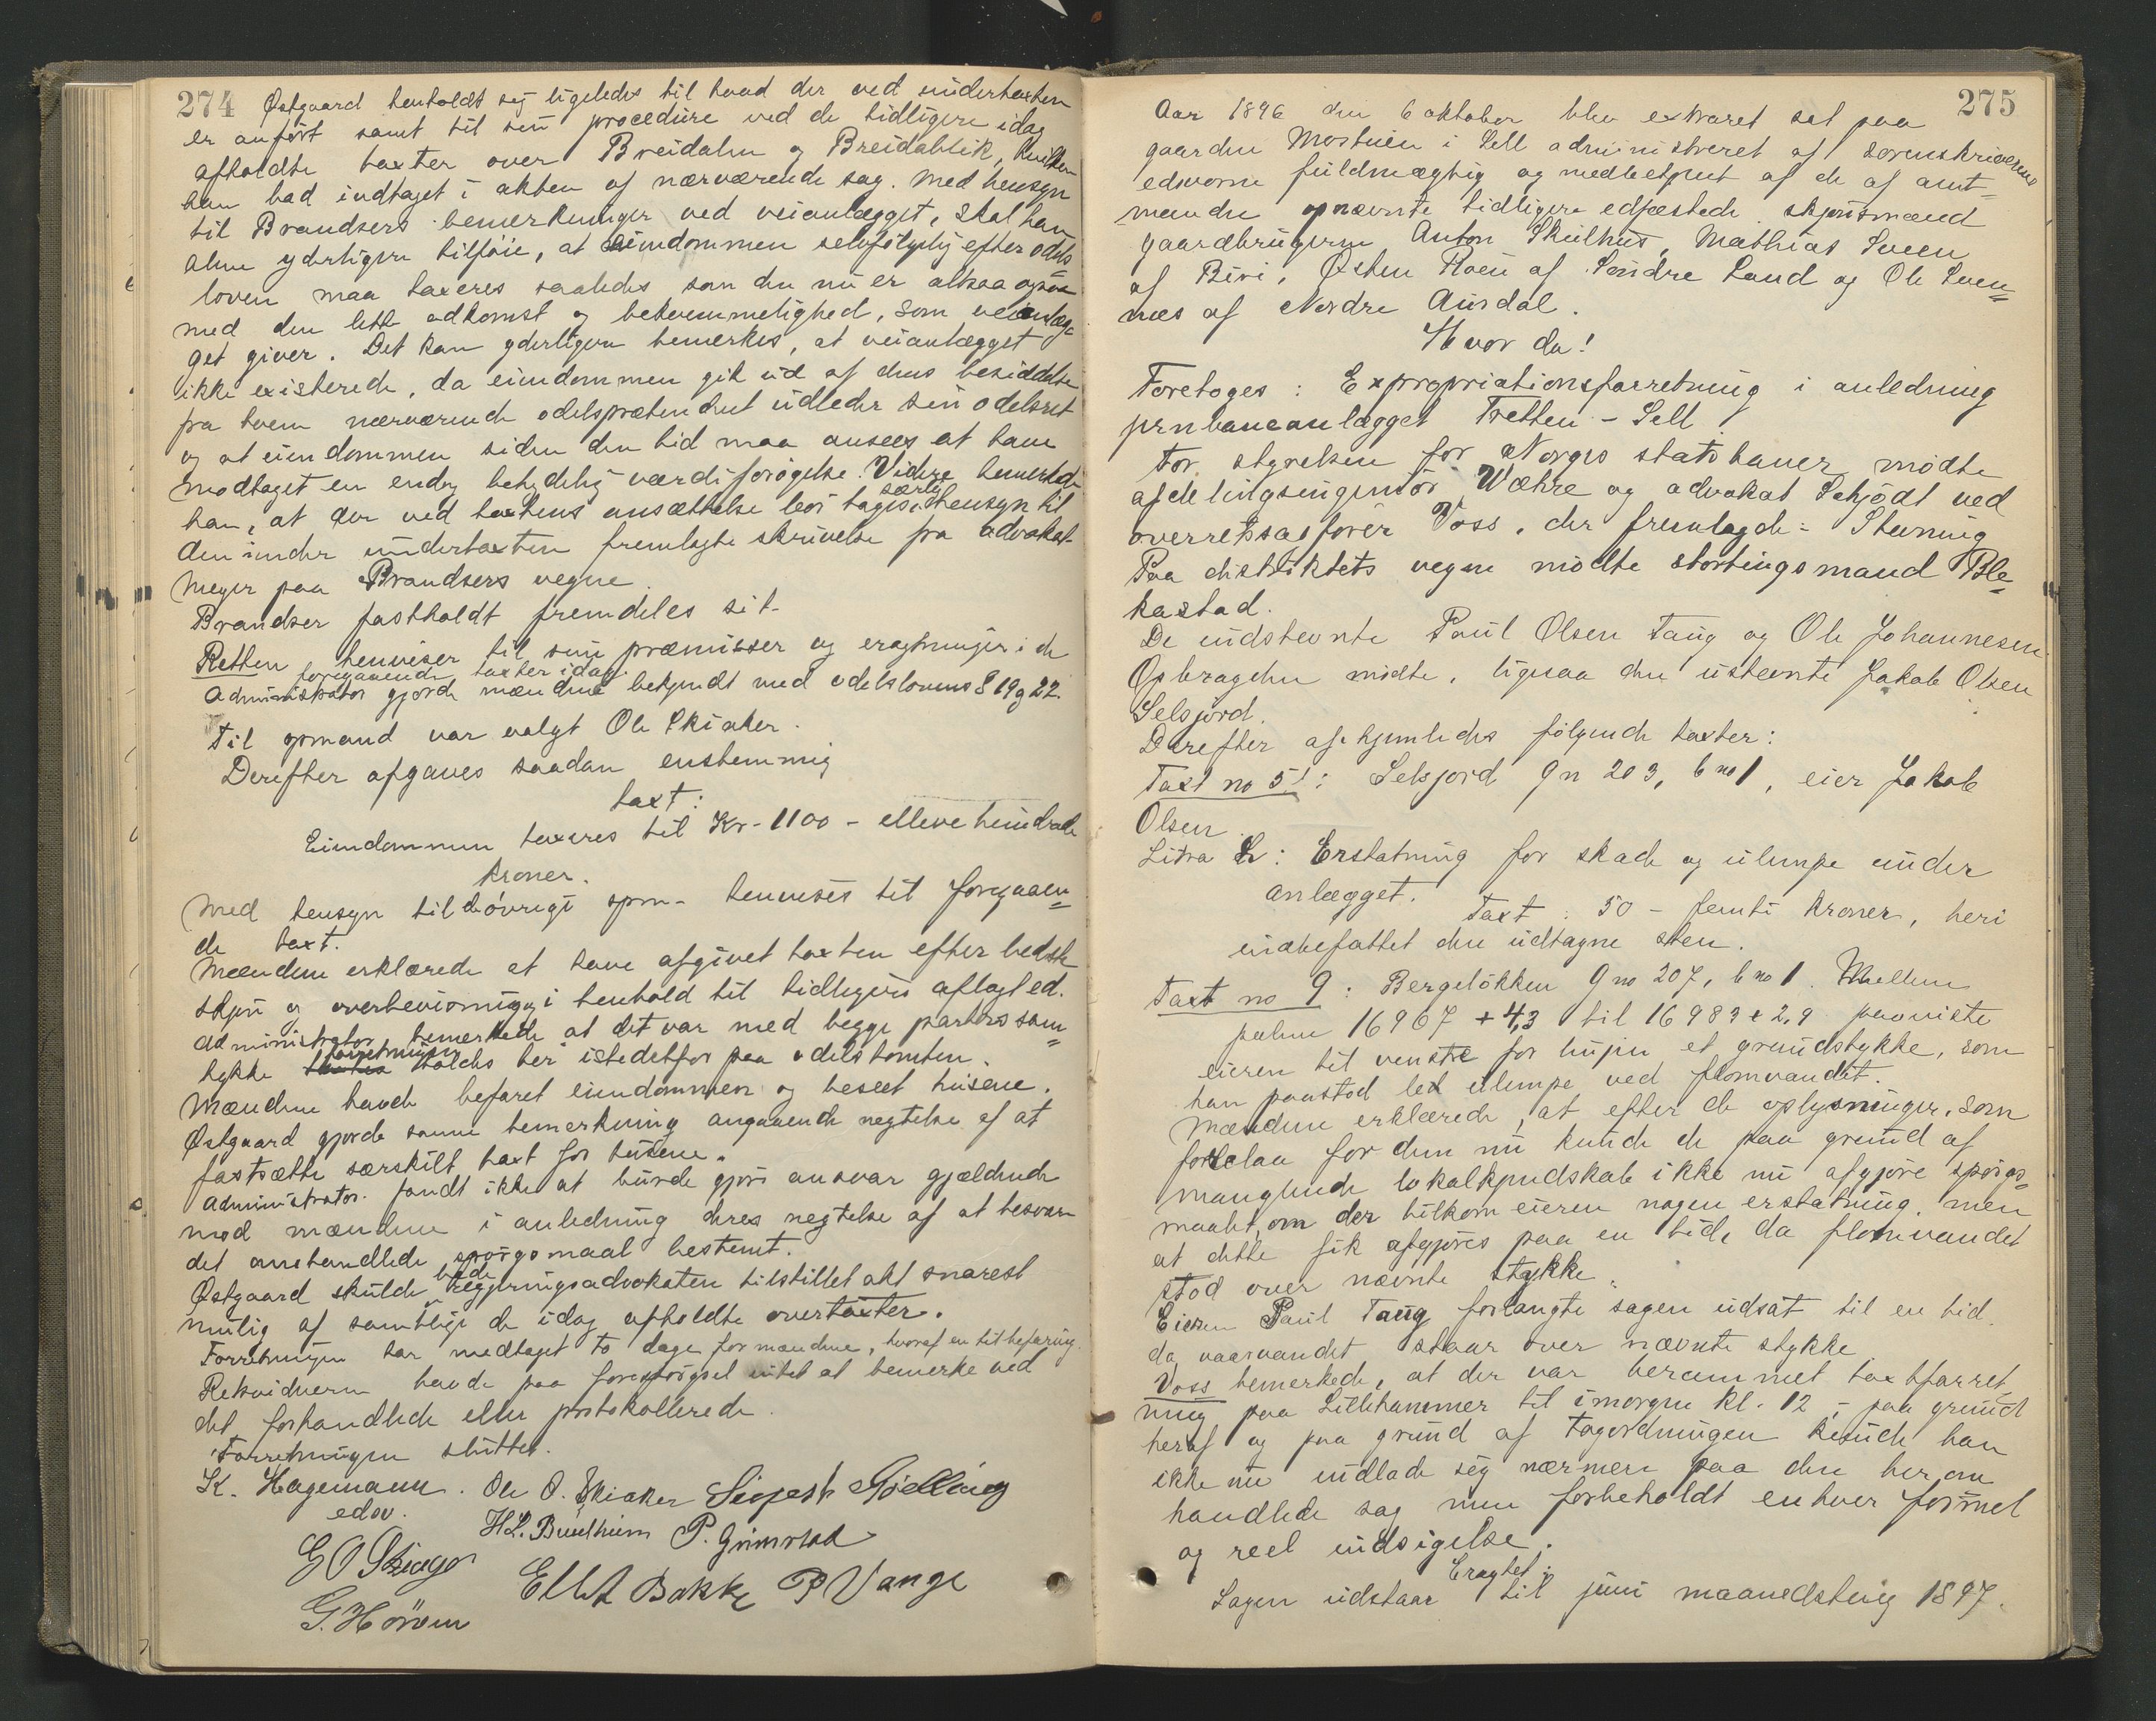 274
Østgaard henholdt sig ligeledes til hvad der ved undertaxten
er anført samt til sin procedure ved de tidligere idag
afholdte taxter over Breidalen og Breidablik, hvilken
han bad indtaget i akten af nærværende sag. Med hensyn
til Brandsers bemerkninger ved veianlægget, skal han
alene yderligere tilføie, at eiendommen selvfølgelig efter odels
loven maa taxeres saaledes som den nu er altsaa ogsaa
med den lette adkomst og bekvemmelighed, som veianlæg-
get giver. Det kan yderligere bemerkes, at veianlægget
ikke existerede, da eiendommen gik ud af dens besiddelse
fra hvem nærværende odelsprætendent udleder sin odelsret
og at eiendommen siden den tid maa ansees at have
modtaget en endog betydelig værdiforøgelse. Videre bemerkede
han, at der ved taxtens ansættelse bør tages særlig hensyn til
den under undertaxten fremlagte skrivelse fra advokat
Meyer paa Brandsers vegne.
Brandser fastholdt fremdeles sit.
Retten henviser til sine præmisser og eragtninger i de
foregaaende taxter idag.
Administrator gjorde mændene bekjendt med odelslovens § 19 og 22.
Til opmand var valgt Ole Skiaker.
Derefter afgaves saadan enstemmig
taxt:
Eiendommen taxeres til Kr. 1100 - elleve hundrede
kroner.
Med hensyn til de øvrige spm. henvises til foregaaen=
de taxt.
Mændene erklærede at have afgivet taxten efter bedste
skjøn og overbevisning i henhold til tidligere aflagt ed.
Administrator bemerkede at det var med begge parters sam=
tykke forretningen holdes her istedetfor paa odelstomten.
Mændene havde befaret eiendommen og beseet husene.
Østgaard gjorde samme bemerkning angaaende negtelse af at
fastsætte særskilt taxt for husene.
Administrator fandt ikke at burde gjøre ansvar gjældende
mod mændene i anledning deres negtelse af at besvare
det omhandlede spørgsmaal bestemt.
Østgaard skulde bede regjeringsadvokaten tilstillet akt snarest
mulig af samtlige de idag afholdte overtaxter.
Forretningen har medtaget to dage for mændene, hvoraf en til befaring.
Rekvirenten havde paa forespørgsel intet at bemerke ved
det forhandlede eller protokollerede.
Forretningen sluttet.
K. Hagemann. Ole O. Skiaker
edsv. H.L. Bredheim P. Grimstad
Ellet Bakke P Vange
275
Aar 1896 den 6 oktober blev extraret sat paa
gaarden Mostuen i Sell administreret af sorenskriverens
edsvorne fuldmægtig og medbetjent af de af amt=
manden opnævnte tidligere edfæstede skjønsmænd
gaardbrugerne Anton Skulhus, Mathias Sveen
af Biri, Østen Roen af Søndre Land og Ole Sven=
nes af Nordre Aurdal.
Hvor da!
Foretoges: Expropriationsforretning i anledning
jernbaneanlægget Tretten - Sell.
For styrelsen for Norges statsbaner mødte
afdelingsingeniør Wæhre og advokat Schjødt ved
overretssagfører Voss, der fremlagde: Stevning
Paa distriktets vegne mødte stortingsmand Ble=
kastad.
De indstevnte Paul Olsen Taug og Ole Johannesen
Opbragden mødte, ligesaa den ustevnte Jakob Olsen
Selsjord.
Derefter afhjemledes følgende taxter:
Taxt no 51: Selsjord gn 203, b no 1, eier Jakob
Olsen.
Litra L: Erstatning for skade og ulempe under
anlægget. Taxt: 50 - femti kroner, heri
indbefattet den udtagne sten.
Taxt no 9: Bergeløkken g no 207, b no 1. Mellem
pælene 16967 + 4,3 til 16983 + 2,9 paaviste
eieren til venstre for linjen et grundstykke, som
han paastod led ulempe ved flomvandet.
Mændene erklærede, at efter de oplysninger, som
forelaa for dem nu kunde de paa grund af
manglende lokalkjendskab ikke nu afgjøre spørgs=
maalet, om der tilkom eieren nogen erstatning, men
at dette fik afgjøres paa en tid, da flomvandet
stod over nævnte stykke.
Eieren Paul Taug forlangte sagen udsat til en tid,
da vaarvandet staar over nævnte stykke.
Voss bemerkede, at der var berammet taxtforret=
ning paa Lillehammer til imorgen kl. 12, - paa grund
heraf og paa grund af togordningen kunde han
ikke nu indlade sig nærmere paa den her om
handlede sag, men forbeholdt enhver formel
og reel indsigelse.
Eragtet:
Sagen udstaar til juni maanedsting 1897.